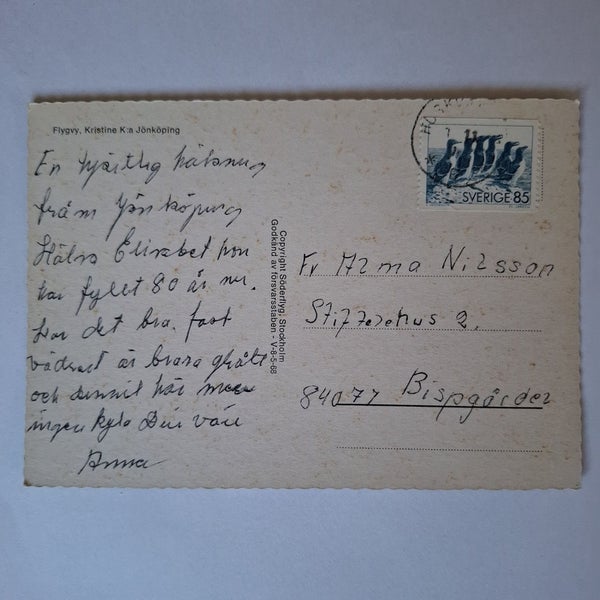 Flygvy, Kristine K:a Jönköping
En hjärtlig hälsning
från Jönköping
Hälsa Elisabet hon
har fyllt 80 år nu.
har det bra. fast
vädret är bara grått
och här
ingen kyla Din vän
Anna
Copyright Söderflyg, Stockholm
Godkänd av försvarsstaben - V-8-5-68
HUSKV
SVERIGE 85
Fr Alma Nilsson
Stiftelsehus 2.
84077 Bispgården